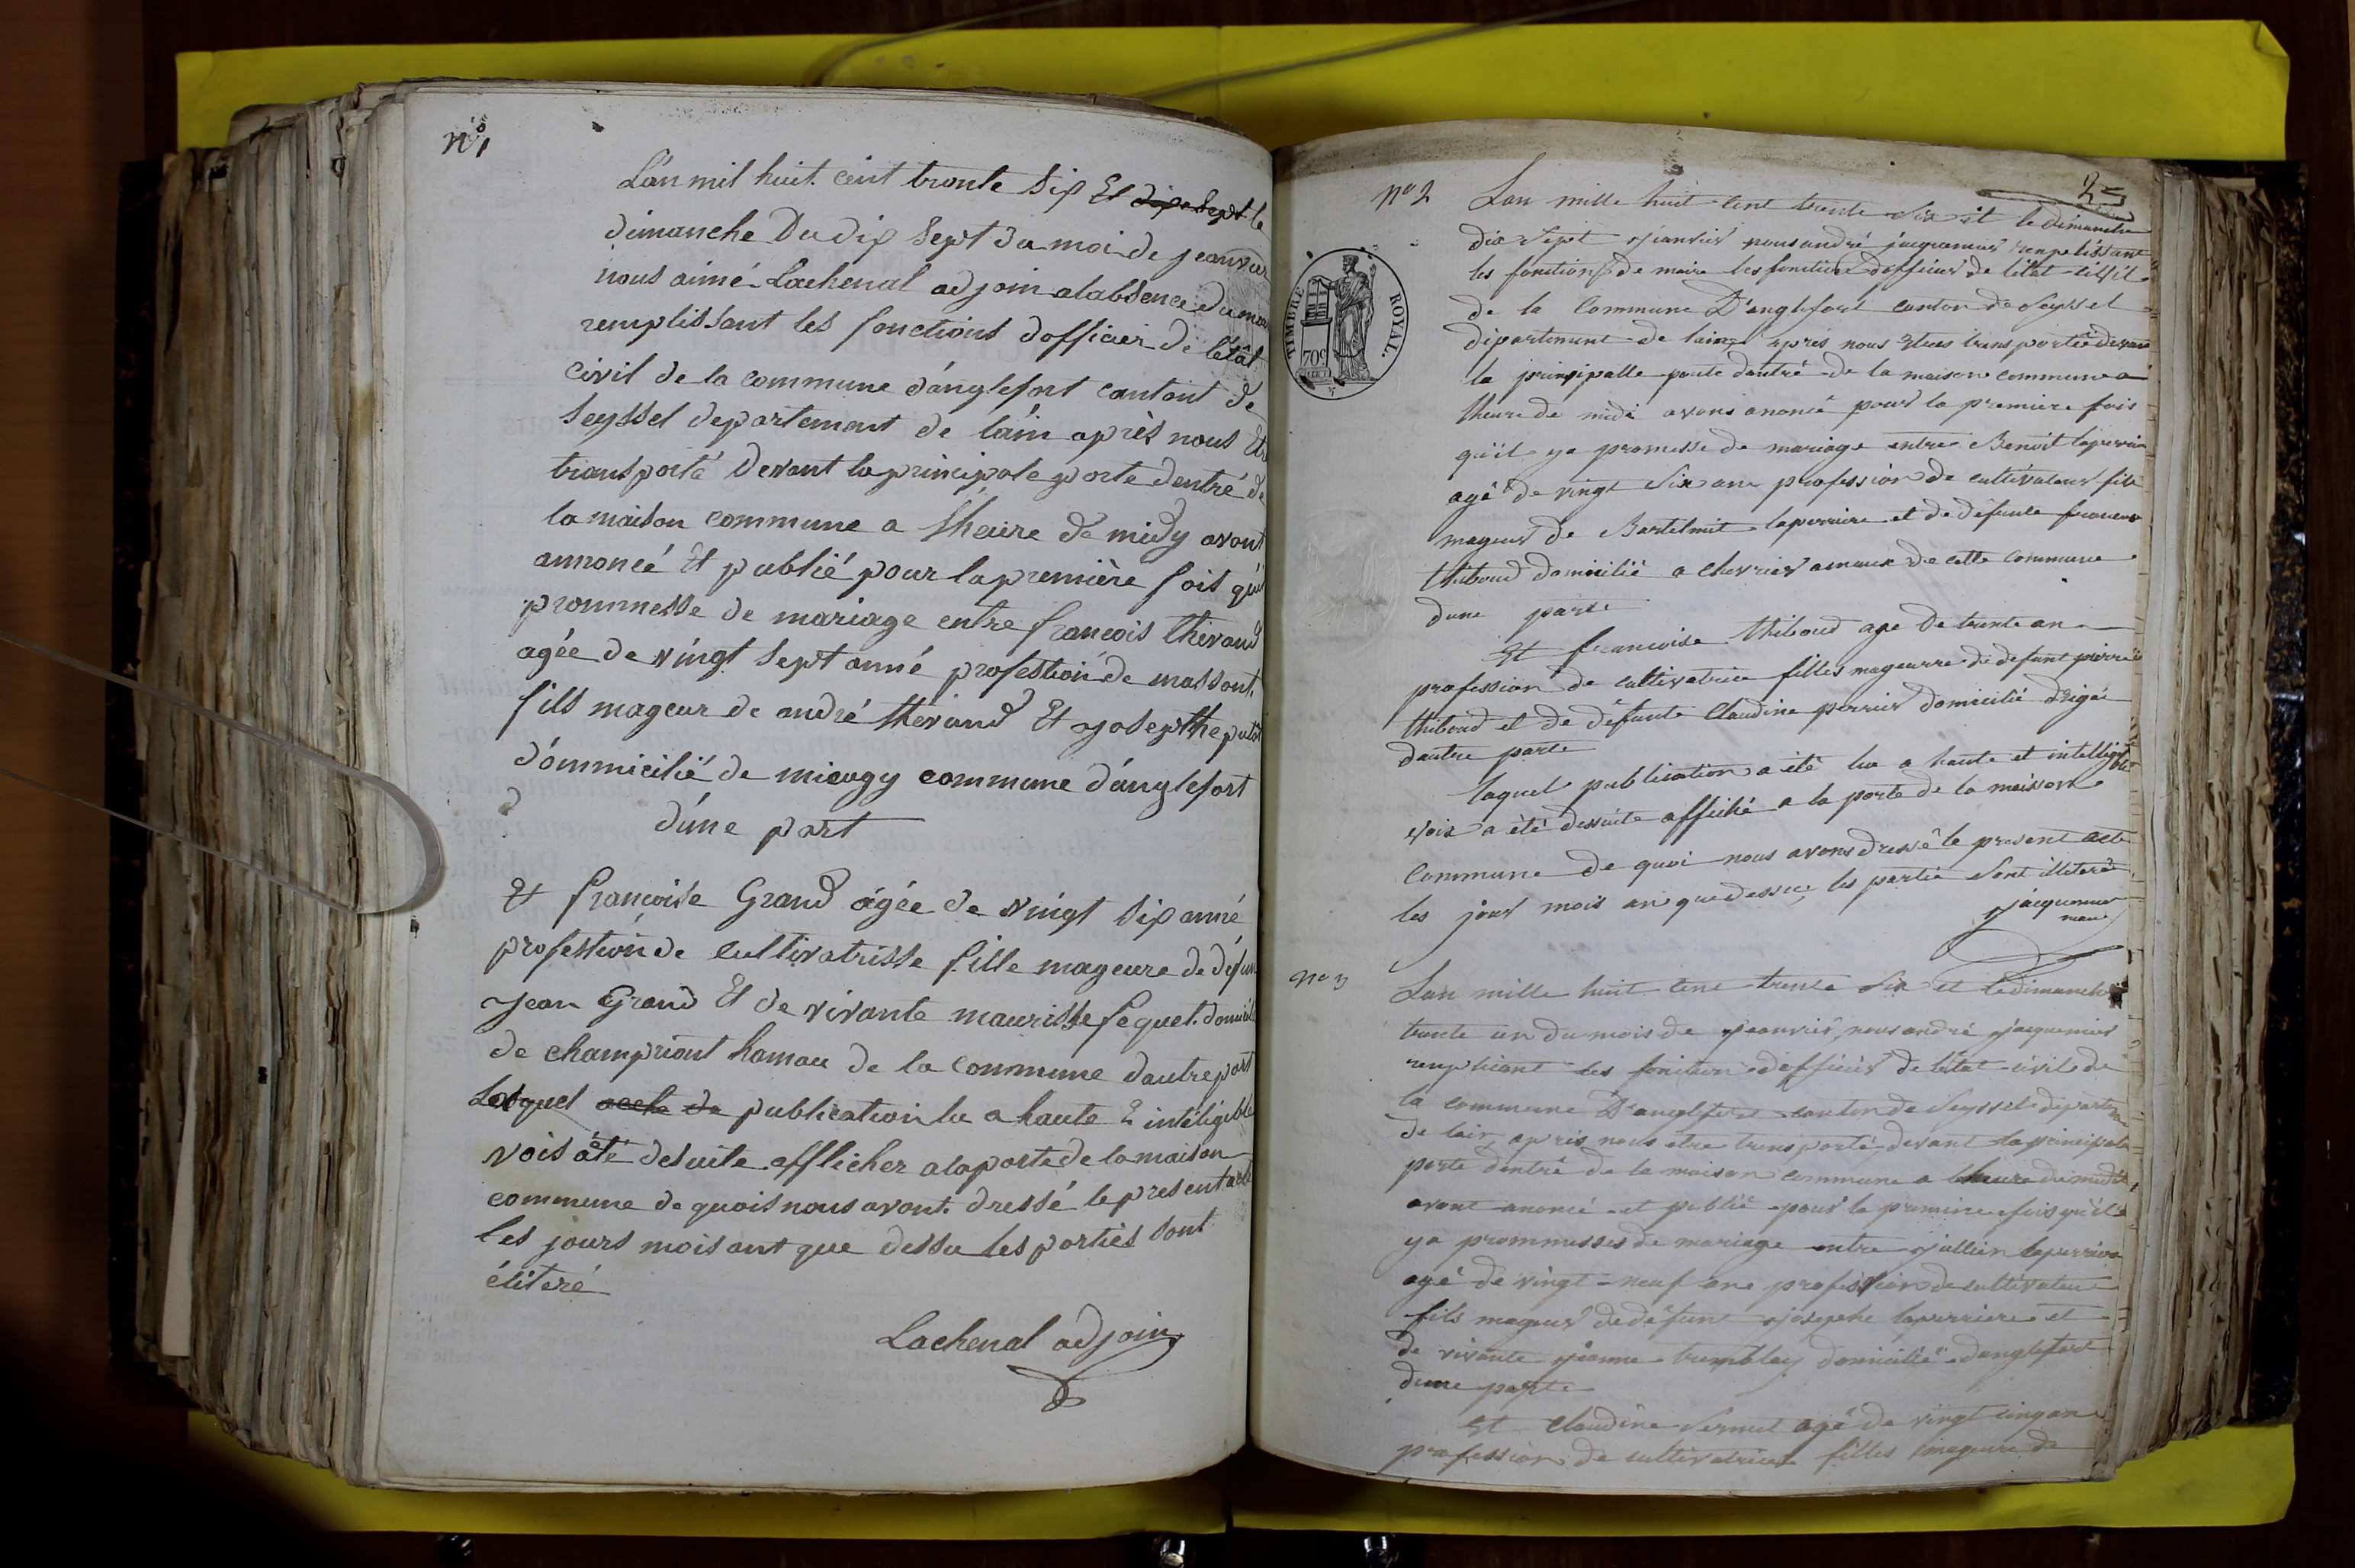 n°1
L'an mil huit cent trente six Et dix sept le
dimanche Du dix sept du moi de jeanvier
nous aimé Lachenal adjoin alabsence du maire
remplissant les fonctions dofficier de létât
civil de la commune d'anglefort cantont de
Seyssel departement de l'ain après nous Etre
transporté Devant la principale porte dentré de
la maison commune a lheure de midy avont
annoncé Et publié pour la première fois qu'il
prommesse de mariage entre francois thevand
agée de vingt sept anné profession de massont
fils mageur de andré thévand Et josepthe
d'ommicilié de mieugy commune d'anglefort
d'une part
Et françoise Grand agée de vingt six anné
profession de cultivatrisse fille mageure de défun
jean Grand Et de vivante maurisse fequet domicilié
de champriont hamau de la commune dautre part
Laquel acete de publication lu a haute & inteligible
vois été desuite afflicher a la porte de la maison
commune de quois nous avont dressé le present acte
les jours mois ant que dessu les porties sont
éliteré
Lachenal adjoin
25
n° 2
Lan mille huit cent trente six et le dimanche
dix sept janvier nous andré jacquemier renpelissant
les fonctions de maire les fonctions dofficier de l'état sissil
de la commune D'anglefort canton de Seyssel
département de lain après nous Etres transportée devant
la prinsipalle porte dantré de la maison commune a
lheure de midi avons anoncé pour la premiere fois
qu'il ya promesse de mariage entre Benoit laperrier
agé de vingt six ans profession de cultivateur fils
mageur de Bartelmit laperriere et de défunte
thiboud domicilié a chevrier amaux de cette commune
dune parte
Et francoise thiboud age de trente an
profession de cultivatrice filles mageurre de defunt pierre
thiboud et de défunte Claudine perrier domicilié
dautre parte
laquel publication a été lu a haute et intelligible
vois a été dessuite affiché a la porte de la maison
commune de quoi nous avons dressé le present acte
les jour mois an que dessu, les partie sont illiteré
jacquemier
maire
TIMBRE ROYAL.
70c
n° 3
Lan mille huit cent trente six et le dimanche
trente un du mois de jeanvier, nous andré jacquemier
renpliciant les fonction dofficier de l'état civile de
la commune D'anglefort canton de Seyssel departem
de lain, après nous etre transporté devant la principale
porte dentré de la maison commune a lheure de midi
avont anoncé et publié pour la premiere fois qu'il
ya prommesses de mariage entre jullien laperriere
agé de vingt-neuf ans profession de cultivateur
fils mageur de défunt josephe laperriere et
de vivante jeanne tremblay domicilié danglefort
dune parte
Et Claudine Sermet agé de vingt cinq an
profession de cultivatrice filles mageure de